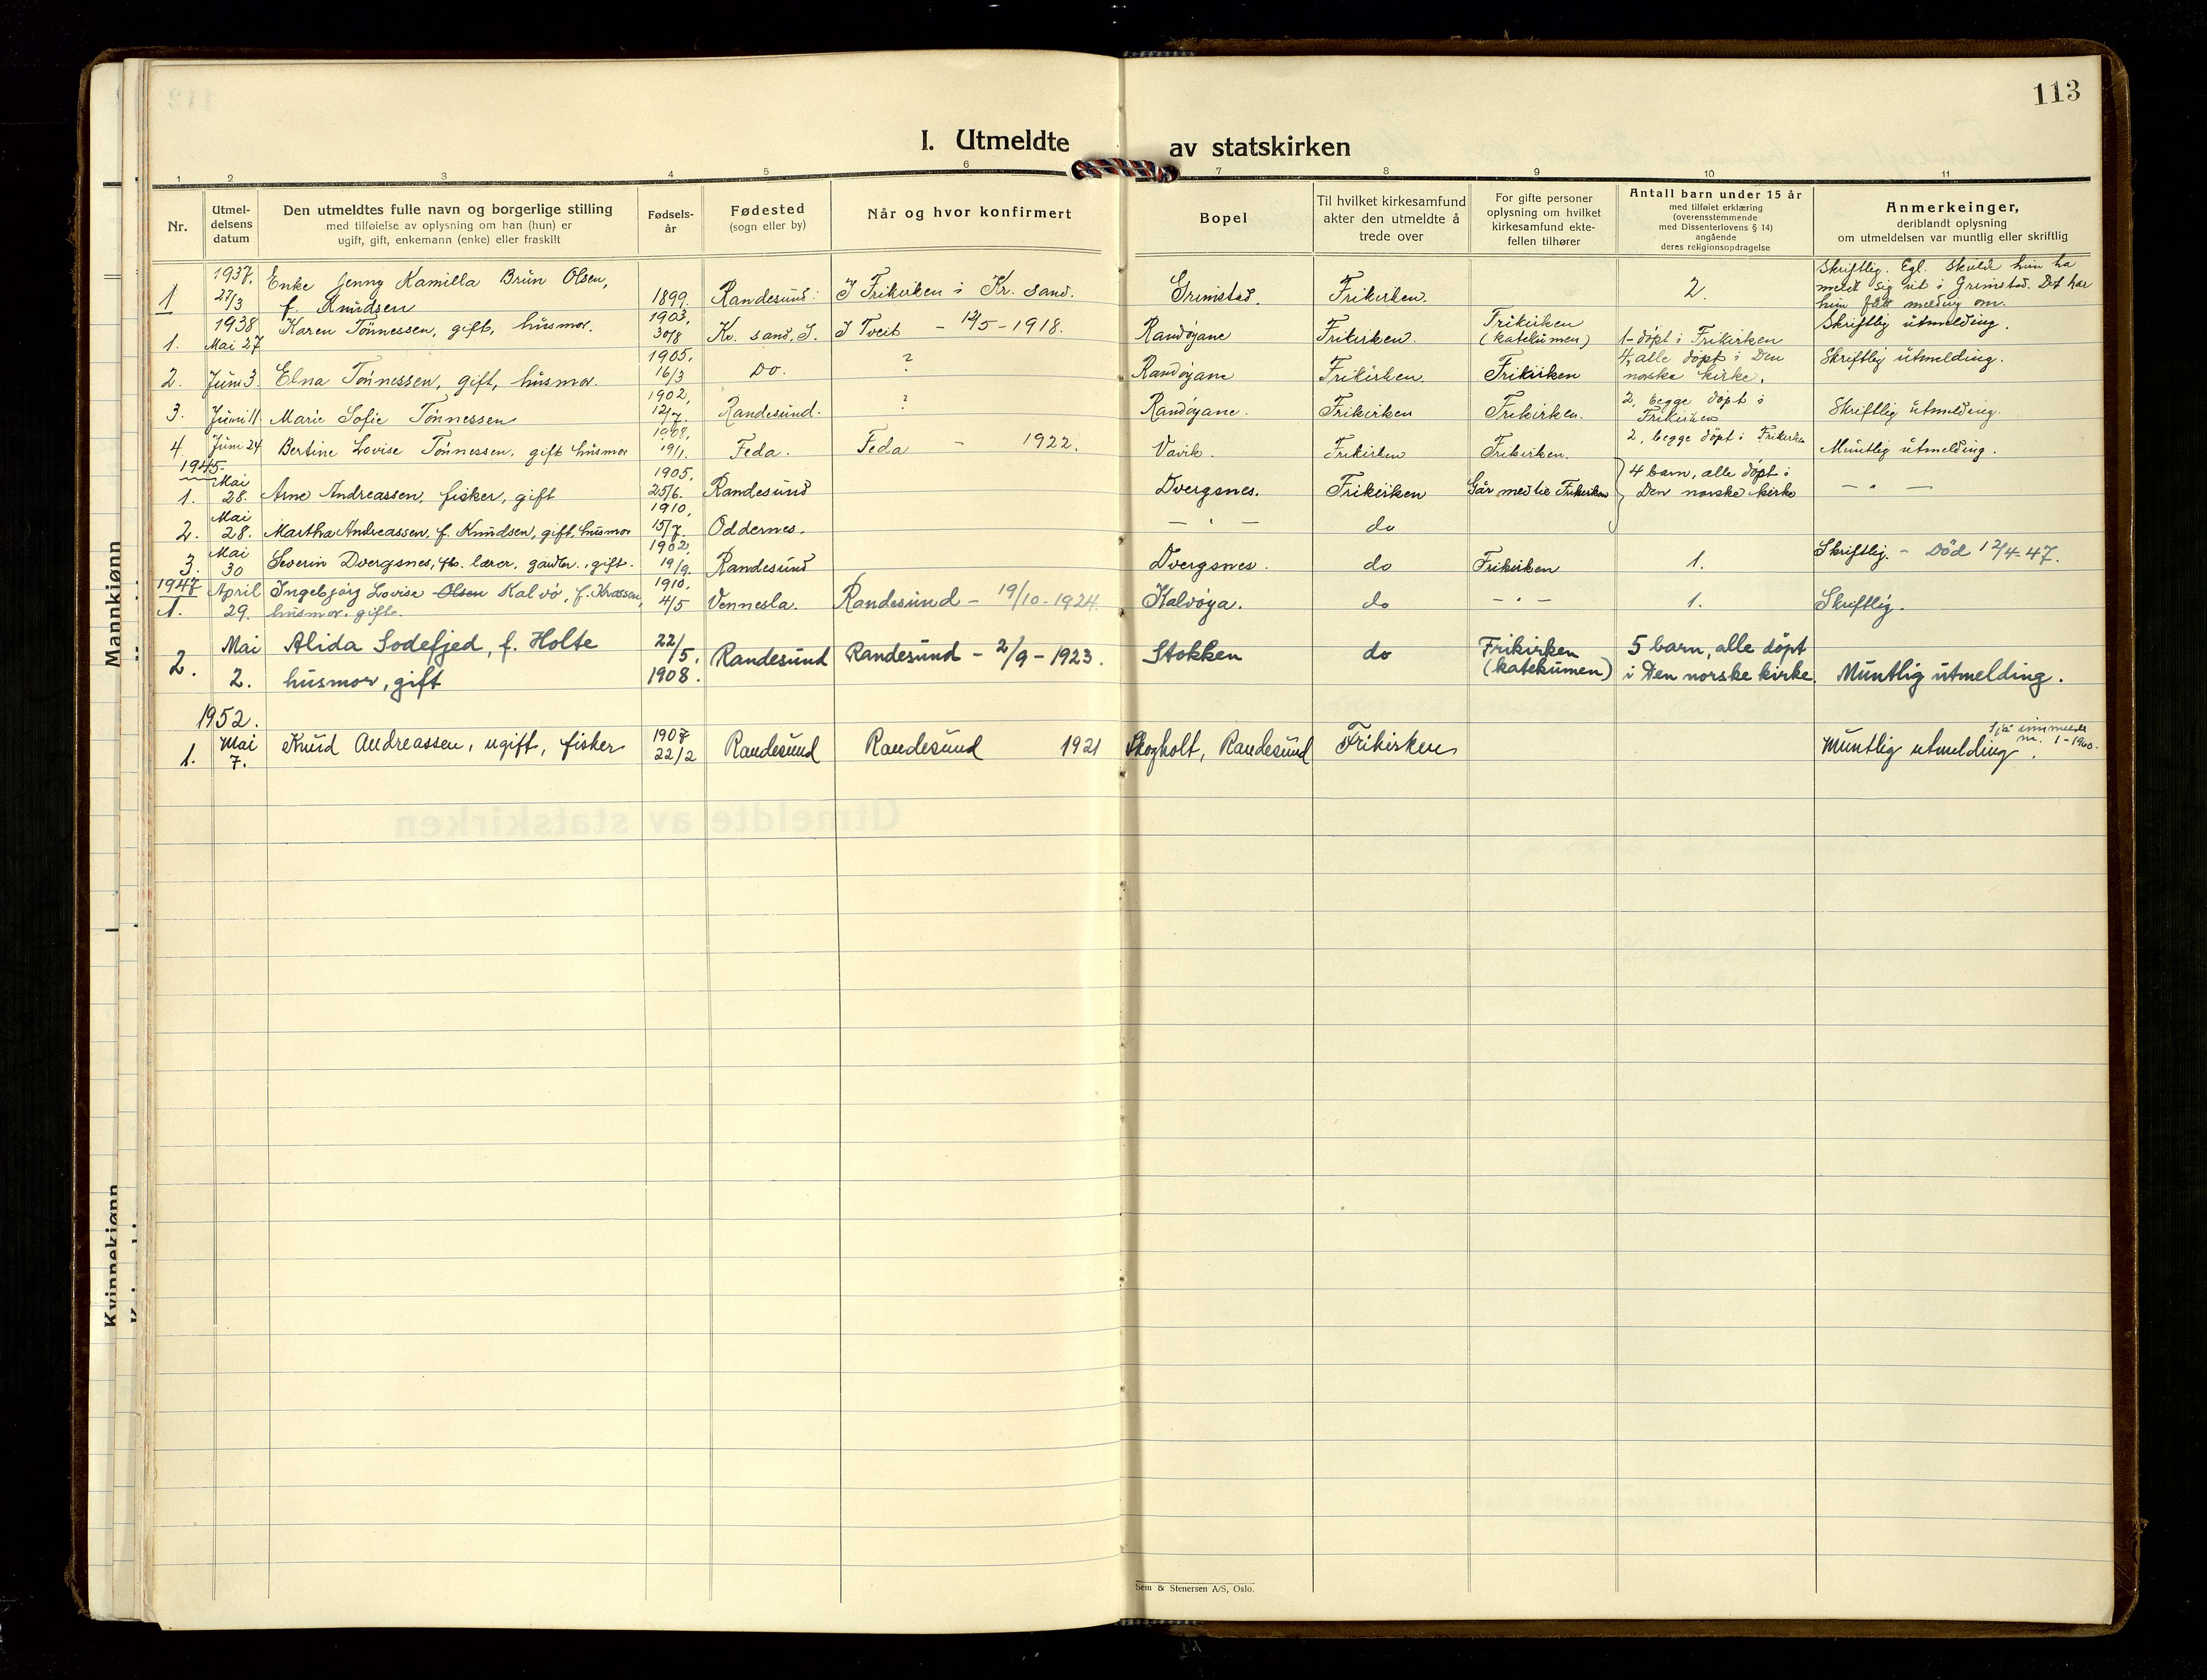 113
I. Utmeldte av statskirken
1 2 3 4 5 6 7 8 9 10 11
Nr.
Utmel-
delsens
datum
Den utmeldtes fulle navn og borgerlige stilling
med tilføielse av oplysning om han (hun) er
ugift, gift, enkemann (enke) eller fraskilt
Fødsels-
år
Fødested
(sogn eller by)
Når og hvor konfirmert
Bopel
Til hvilket kirkesamfund
akter den utmeldte å
trede over
For gifte personer
oplysning om hvilket
kirkesamfund ekte-
fellen tilhører
Antall barn under 15 år
med tilføiet erklæring
(overensstemmende
med Dissenterlovens § 14)
angående
deres religionsopdragelse
Anmerkeinger,
deriblandt oplysning
om utmeldelsen var muntlig eller skriftlig
1937.
1 27/3 Enke Jenny Kamilla Brun Olsen,
f. Knudsen
1899. Randesund. I Frikirken i Kr. sand. Grimstad. Frikirken. 2.
Skriftlig. Egl. skulde hun ha
meldt sig ut i Grimstad. Det har
hun fått melding om.
1938
1. Mai 27 Karen Tönnessen, gift, husmor.
1903.
30/8 Kr. sand, S. I Tveit – 12/5 – 1918. Randöyane Frikirken.
Frikirken
(katekumen)
1 - döpt i Frikirken
Skriftlig utmelding.
2. Juni 3. Elna Tönnessen, gift, husmor.
1905.
16/3 Do. ? Randöyane Frikirken. Frikirken
4, alle döpt i Den
norske kirke.
Skriftlig utmelding.
3. Juni 11. Marie Sofie Tönnessen
1902,
12/7 Randesund. ? Randöyane. Frikirken Frikirken.
2, begge döpt i
Frikirken
Skriftlig utmelding.
4. Juni 24 Bertine Lovise Tönnessen, gift husmor
1908,
19/1. Feda. Feda – 1922. Vavik. Frikirken Frikirken.
2, begge döpt i Frikirken
Muntlig utmelding.
1945.
1. Mai
28. Arne Andreassen, fisker, gift
1905.
25/6. Randesund Dvergsnes. Frikirken Går med til Frikirken
4 barn, alle döpt i
Den norske kirke
– " –
2. Mai
28. Martha Andreassen, f. Knudsen, gift, husmor
1910,
15/7 Oddernes. – " – do
3. Mai
30 Severin Dvergsnes, fhv. lærer, gårdbr., gift.
1902,
19/9. Randesund Dvergsnes. do Frikirken 1.
Skriftlig. – Död 12/4-47.
1947
1. April
29. Ingebjörg Lovise Olsen Kalvö, f.
husmor, gifte
1910.
4/5 Vennesla. Randesund – 19/10 - 1924. Kalvöya. do – " – 1. Skriftlig.
2. Mai
2. Alida Sodefjed, f. Holte
husmor, gift
22/5.
1908. Randesund Randesund – 2/9 – 1923. Stokken do
Frikirken
(katekumen)
5 barn, alle döpt
i Den norske kirke.
Muntlig utmelding.
1952.
1. Mai
7. Knud Andreassen, ugift, fisker
1907
22/2 Randesund Randesund 1921 Skogholt, Randesund Frikirken
Muntlig utmelding.
innmeldte
nr. 1 - 1960.
Mannkjønn
Kvinnekjønn
Sem & Stenersen A/S, Oslo.